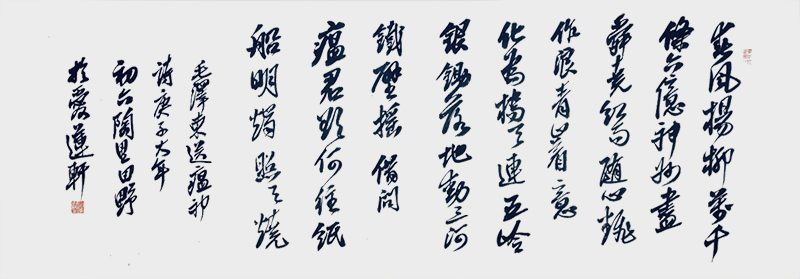 春風楊柳萬千
條六億神州盡
舜堯紅雨隨心翻
作浪青山着意
化為橋天連五岭
銀鋤落地動三河
鐵臂搖借問
瘟君欲何往紙
船明燭照天燒
毛澤東送瘟神
詩庚子大年
初六陶里田野
於愛蓮軒